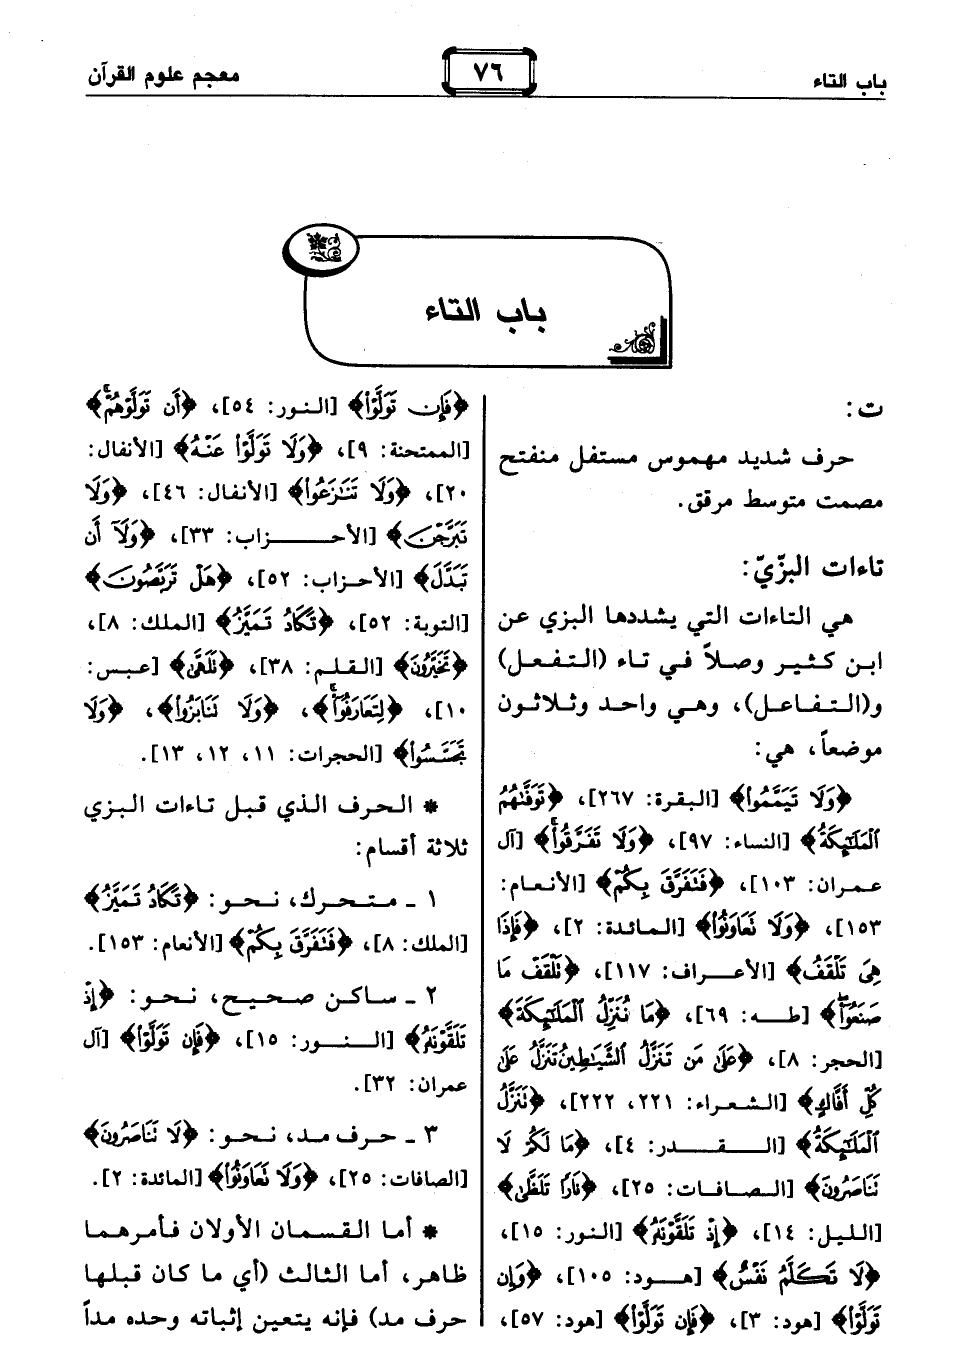 باب التاء
٧٦
معجم علوم القرآن
باب التاء
ت:
حرف شديد مهموس مستفل منفتح
مصمت متوسط مرقق.
تاءات البزّيّ:
هي التاءات التي يشددها البزي عن
ابن كثير وصلاً في تاء (التفعل)
و(التفاعل)، وهي واحد وثلاثون
موضعاً، هي:
﴿وَلَا تَيَمَّمُوا﴾ [البقرة: ٢٦٧]، ﴿تَوَفَّىٰهُمُ
ٱلْمَلَٰٓئِكَةُ﴾ [النساء: ٩٧]، ﴿وَلَا تَفَرَّقُوا۟ۚ﴾ [آل
عمران: ١٠٣]، ﴿فَتَفَرَّقَ بِكُمْ﴾ [الأنعام:
١٥٣]، ﴿وَلَا تَعَاوَنُوا۟﴾ [المائدة: ٢]، ﴿فَإِذَا
هِيَ تَلْقَفُ﴾ [الأعراف: ١١٧]، ﴿تَلْقَفْ مَا
صَنَعُوٓا۟ۖ﴾ [طه: ٦٩]، ﴿مَا نُنَزِّلُ ٱلْمَلَٰٓئِكَةَ﴾
[الحجر: ٨]، ﴿عَلَىٰ مَن تَنَزَّلُ ٱلشَّيَٰطِينُ تَنَزَّلُ عَلَىٰ
كُلِّ أَفَّاكٍ﴾ [الشعراء: ٢٢١، ٢٢٢]، ﴿تَنَزَّلُ
ٱلْمَلَٰٓئِكَةُ﴾ [القدر: ٤]، ﴿مَا لَكُمْ لَا
تَنَاصَرُونَ﴾ [الصافات: ٢٥]، ﴿نَارًا تَلَظَّىٰ﴾
[الليل: ١٤]، ﴿إِذْ تَلَقَّوْنَهُۥ﴾ [النور: ١٥]،
﴿لَا تَكَلَّمُ نَفْسٌ﴾ [هود: ١٠٥]، ﴿وَإِن
تَوَلَّوْا۟﴾ [هود: ٣]، ﴿فَإِن تَوَلَّوْا۟﴾ [هود: ٥٧]،
﴿فَإِن تَوَلَّوْا۟﴾ [النور: ٥٤]، ﴿أَن تَوَلَّوْهُمْۚ﴾
[الممتحنة: ٩]، ﴿وَلَا تَوَلَّوْا۟ عَنْهُ﴾ [الأنفال:
٢٠]، ﴿وَلَا تَنَٰزَعُوا۟﴾ [الأنفال: ٤٦]، ﴿وَلَا
تَبَرَّجْنَ﴾ [الأحزاب: ٣٣]، ﴿وَلَآ أَن
تَبَدَّلَ﴾ [الأحزاب: ٥٢]، ﴿هَلْ تَرَبَّصُونَ﴾
[التوبة: ٥٢]، ﴿تَكَادُ تَمَيَّزُ﴾ [الملك: ٨]،
﴿تَخَيَّرُونَ﴾ [القلم: ٣٨]، ﴿تَلَهَّىٰ﴾ [عبس:
١٠]، ﴿لِتَعَارَفُوٓا۟ۚ﴾، ﴿وَلَا تَنَابَزُوا۟﴾، ﴿وَلَا
تَجَسَّسُوا۟﴾ [الحجرات: ١١، ١٢، ١٣].
* الحرف الذي قبل تاءات البزي
ثلاثة أقسام:
١ ـ متحرك، نحو: ﴿تَكَادُ تَمَيَّزُ﴾
[الملك: ٨]، ﴿فَتَفَرَّقَ بِكُمْ﴾ [الأنعام: ١٥٣].
٢ ـ ساكن صحيح، نحو: ﴿إِذْ
تَلَقَّوْنَهُۥ﴾ [النور: ١٥]، ﴿فَإِن تَوَلَّوْا۟﴾ [آل
عمران: ٣٢].
٣ ـ حرف مد، نحو: ﴿لَا تَنَاصَرُونَ﴾
[الصافات: ٢٥]، ﴿وَلَا تَعَاوَنُوا۟﴾ [المائدة: ٢].
* أما القسمان الأولان فأمرهما
ظاهر، أما الثالث (أي ما كان قبلها
حرف مد) فإنه يتعين إثباته وحده مداً